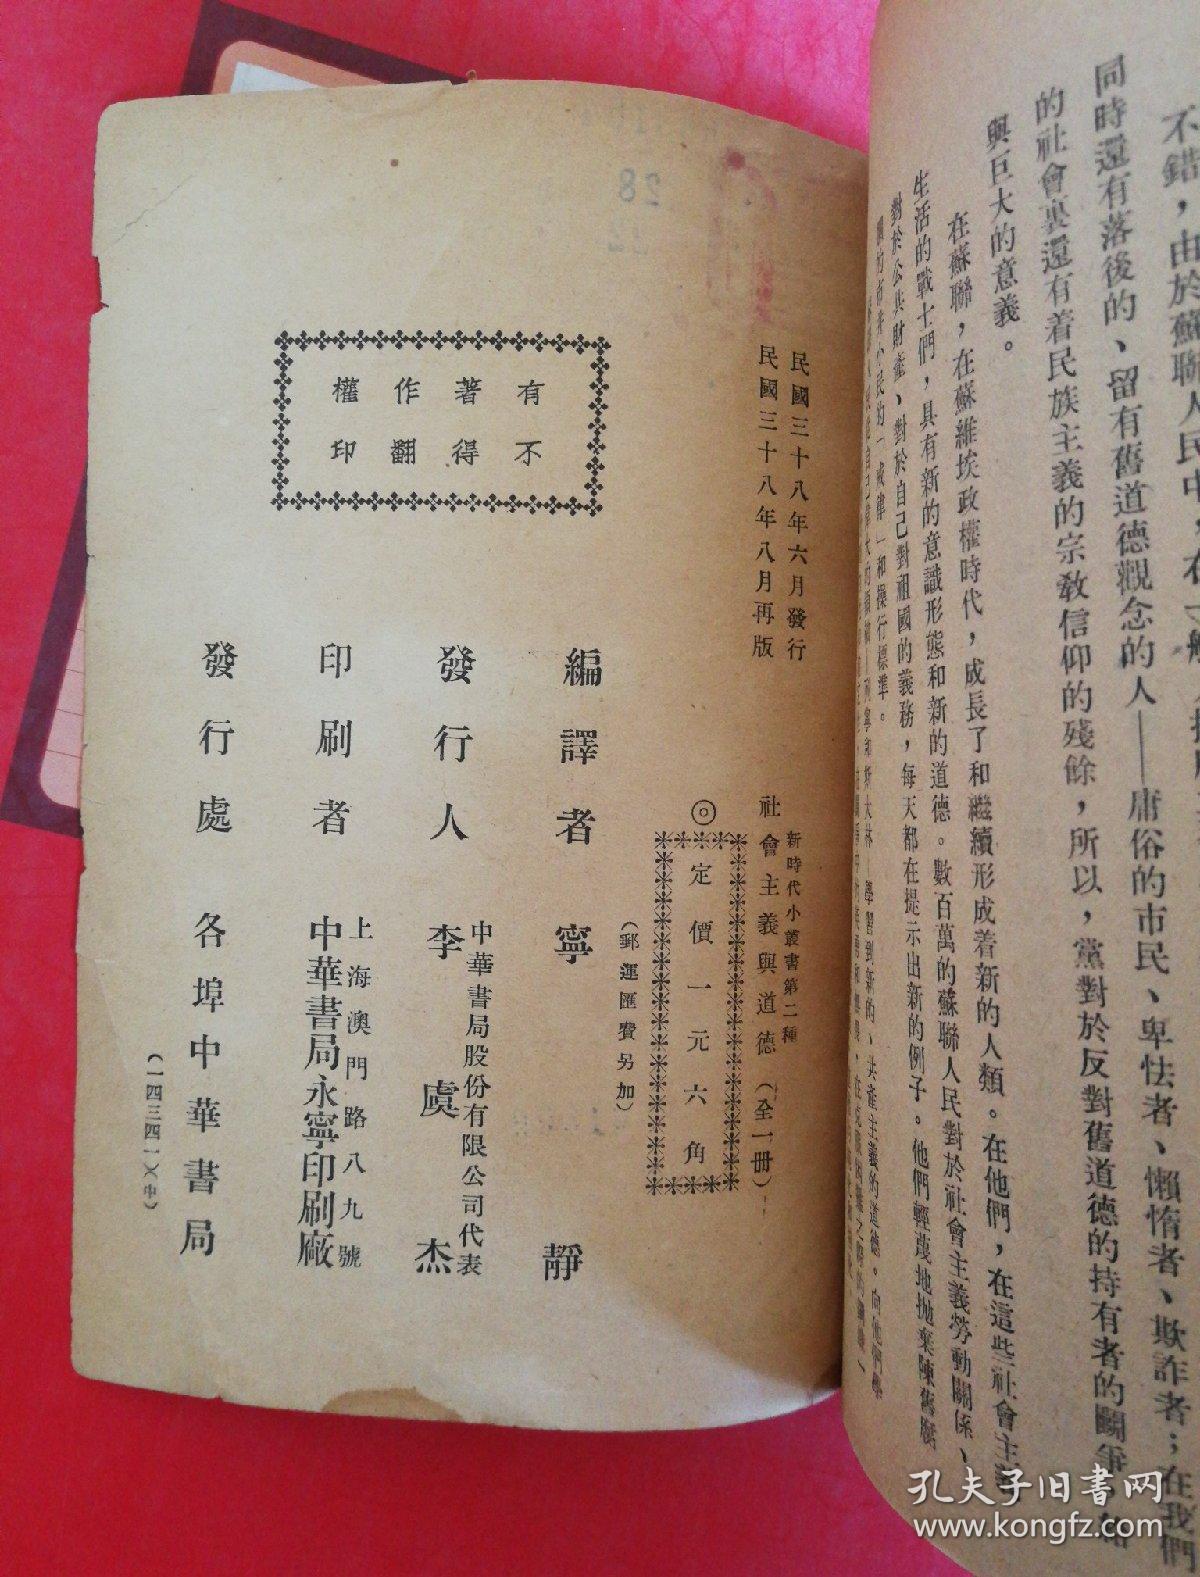 不錯，由於蘇聯人民中，在一般
同時還有落後的、留有舊道德觀念的人——庸俗的市民、卑怯者、懶惰者、欺詐者；在我們
的社會裏還有着民族主義的宗教信仰的殘餘，所以，黨對於反對舊道德的持有者的鬭爭，給
與巨大的意義。
在蘇聯，在蘇維埃政權時代，成長了和繼續形成着新的人類。在他們，在這些社會主義
生活的戰士們，具有新的意識形態和新的道德。數百萬的蘇聯人民對於社會主義勞動關係、
對於公共財產、對於自己對祖國的義務，每天都在提示出新的例子。他們輕蔑地拋棄陳舊腐
的市井小民的「戒律」和操行標準。
學習到新的、共產主義的道德。向他們學
民國三十八年六月發行
民國三十八年八月再版
新時代小叢書第二種
社會主義與道德（全一冊）
◎定價一元六角
（郵運匯費另加）
有著作權
不得翻印
編譯者 寧靜
發行人 中華書局股份有限公司代表
李虞杰
印刷者 上海澳門路八九號
中華書局永寧印刷廠
發行處 各埠中華書局
（一四三四一）（中）
28
12
孔夫子旧书网
www.kongfz.com